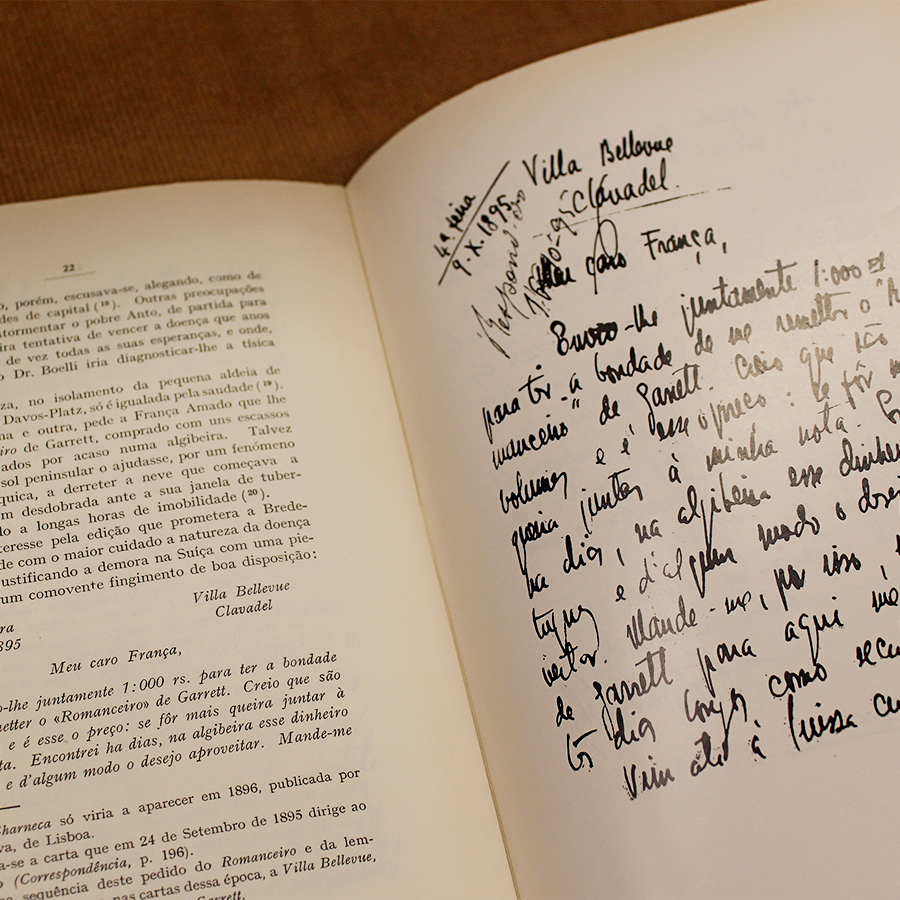 22
o, porém, escusava-se, alegando, como de
des de capital (¹⁸). Outras preocupações
atormentar o pobre Anto, de partida para
ira tentativa de vencer a doença que anos
de vez todas as suas esperanças, e onde,
o Dr. Boelli iria diagnosticar-lhe a tísica
za, no isolamento da pequena aldeia de
Davos-Platz, só é igualada pela saudade (¹⁹).
na e outra, pede a França Amado que lhe
iro de Garrett, comprado com uns escassos
ados por acaso numa algibeira. Talvez
sol peninsular o ajudasse, por um fenómeno
quica, a derreter a neve que começava a
m desdobrada ante a sua janela de tuber-
do a longas horas de imobilidade (²⁰).
teresse pela edição que prometera a Brede-
de com o maior cuidado a natureza da doença
ustificando a demora na Suíça com uma pie-
um comovente fingimento de boa disposição:
Villa Bellevue
Clavadel
ra
895
Meu caro França,
o-lhe juntamente 1:000 rs. para ter a bondade
metter o «Romanceiro» de Garrett. Creio que são
e é esse o preço: se fôr mais queira juntar à
ta. Encontrei ha dias, na algibeira esse dinheiro
e d'algum modo o desejo aproveitar. Mande-me
Charneca só viria a aparecer em 1896, publicada por
va, de Lisboa.
a-se a carta que em 24 de Setembro de 1895 dirige ao
o (Correspondência, p. 196).
sequência deste pedido do Romanceiro e da lem-
nas cartas dessa época, a Villa Bellevue,
Garrett.
4ª feira
9.X.1895
Villa Bellevue
Clavadel.
Meu caro França,
Envio-lhe juntamente 1:000
para ter a bondade de me remetter o "R
manceiro" de Garrett. Creio que são
volumes e é esse o preço: se fôr m
queira juntar á minha nota. E
ha dias, na algibeira esse dinhei
e d'algum modo o desej
Mande-me, por isso,
de Garrett para aqui
dias longos como
Vim até á Suissa